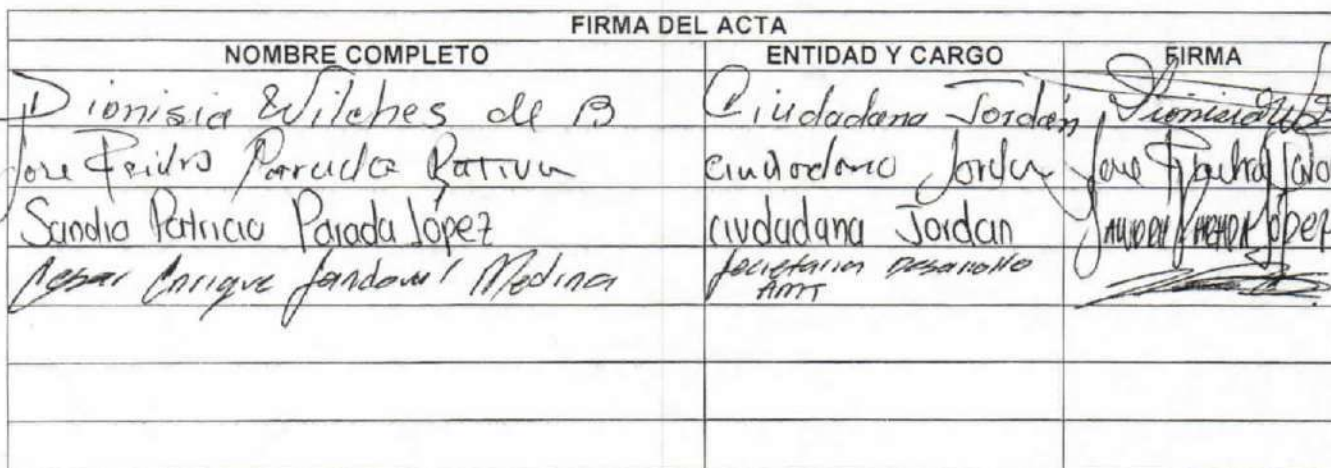 FIRMA DEL ACTA
NOMBRE COMPLETO ENTIDAD Y CARGO FIRMA
Dionisia Wilches de B Ciudadana Jordán Dionisia
Jose Parada ciudadano Jordan Jose
Sandra Patricia Parada López ciudadana Jordan López
Cesar Enrique Sandoval Medina Secretaria Desarrollo
AMT